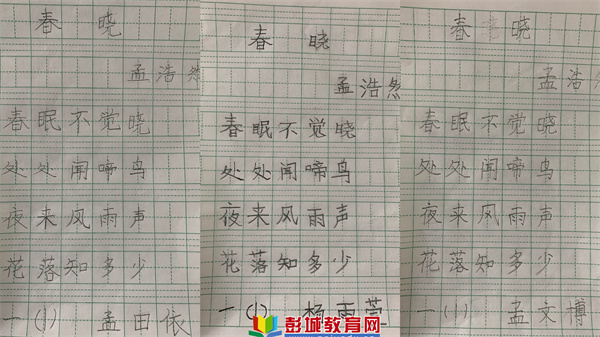 春 晓
孟浩然
春眠不觉晓
处处闻啼鸟
夜来风雨声
花落知多少
一(1) 孟由依
春 晓
孟浩然
春眠不觉晓
处处闻啼鸟
夜来风雨声
花落知多少
一(1) 杨雨萱
春 晓
孟浩然
春眠不觉晓
处处闻啼鸟
夜来风雨声
花落知多少
一(1) 孟文博
彭城教育网